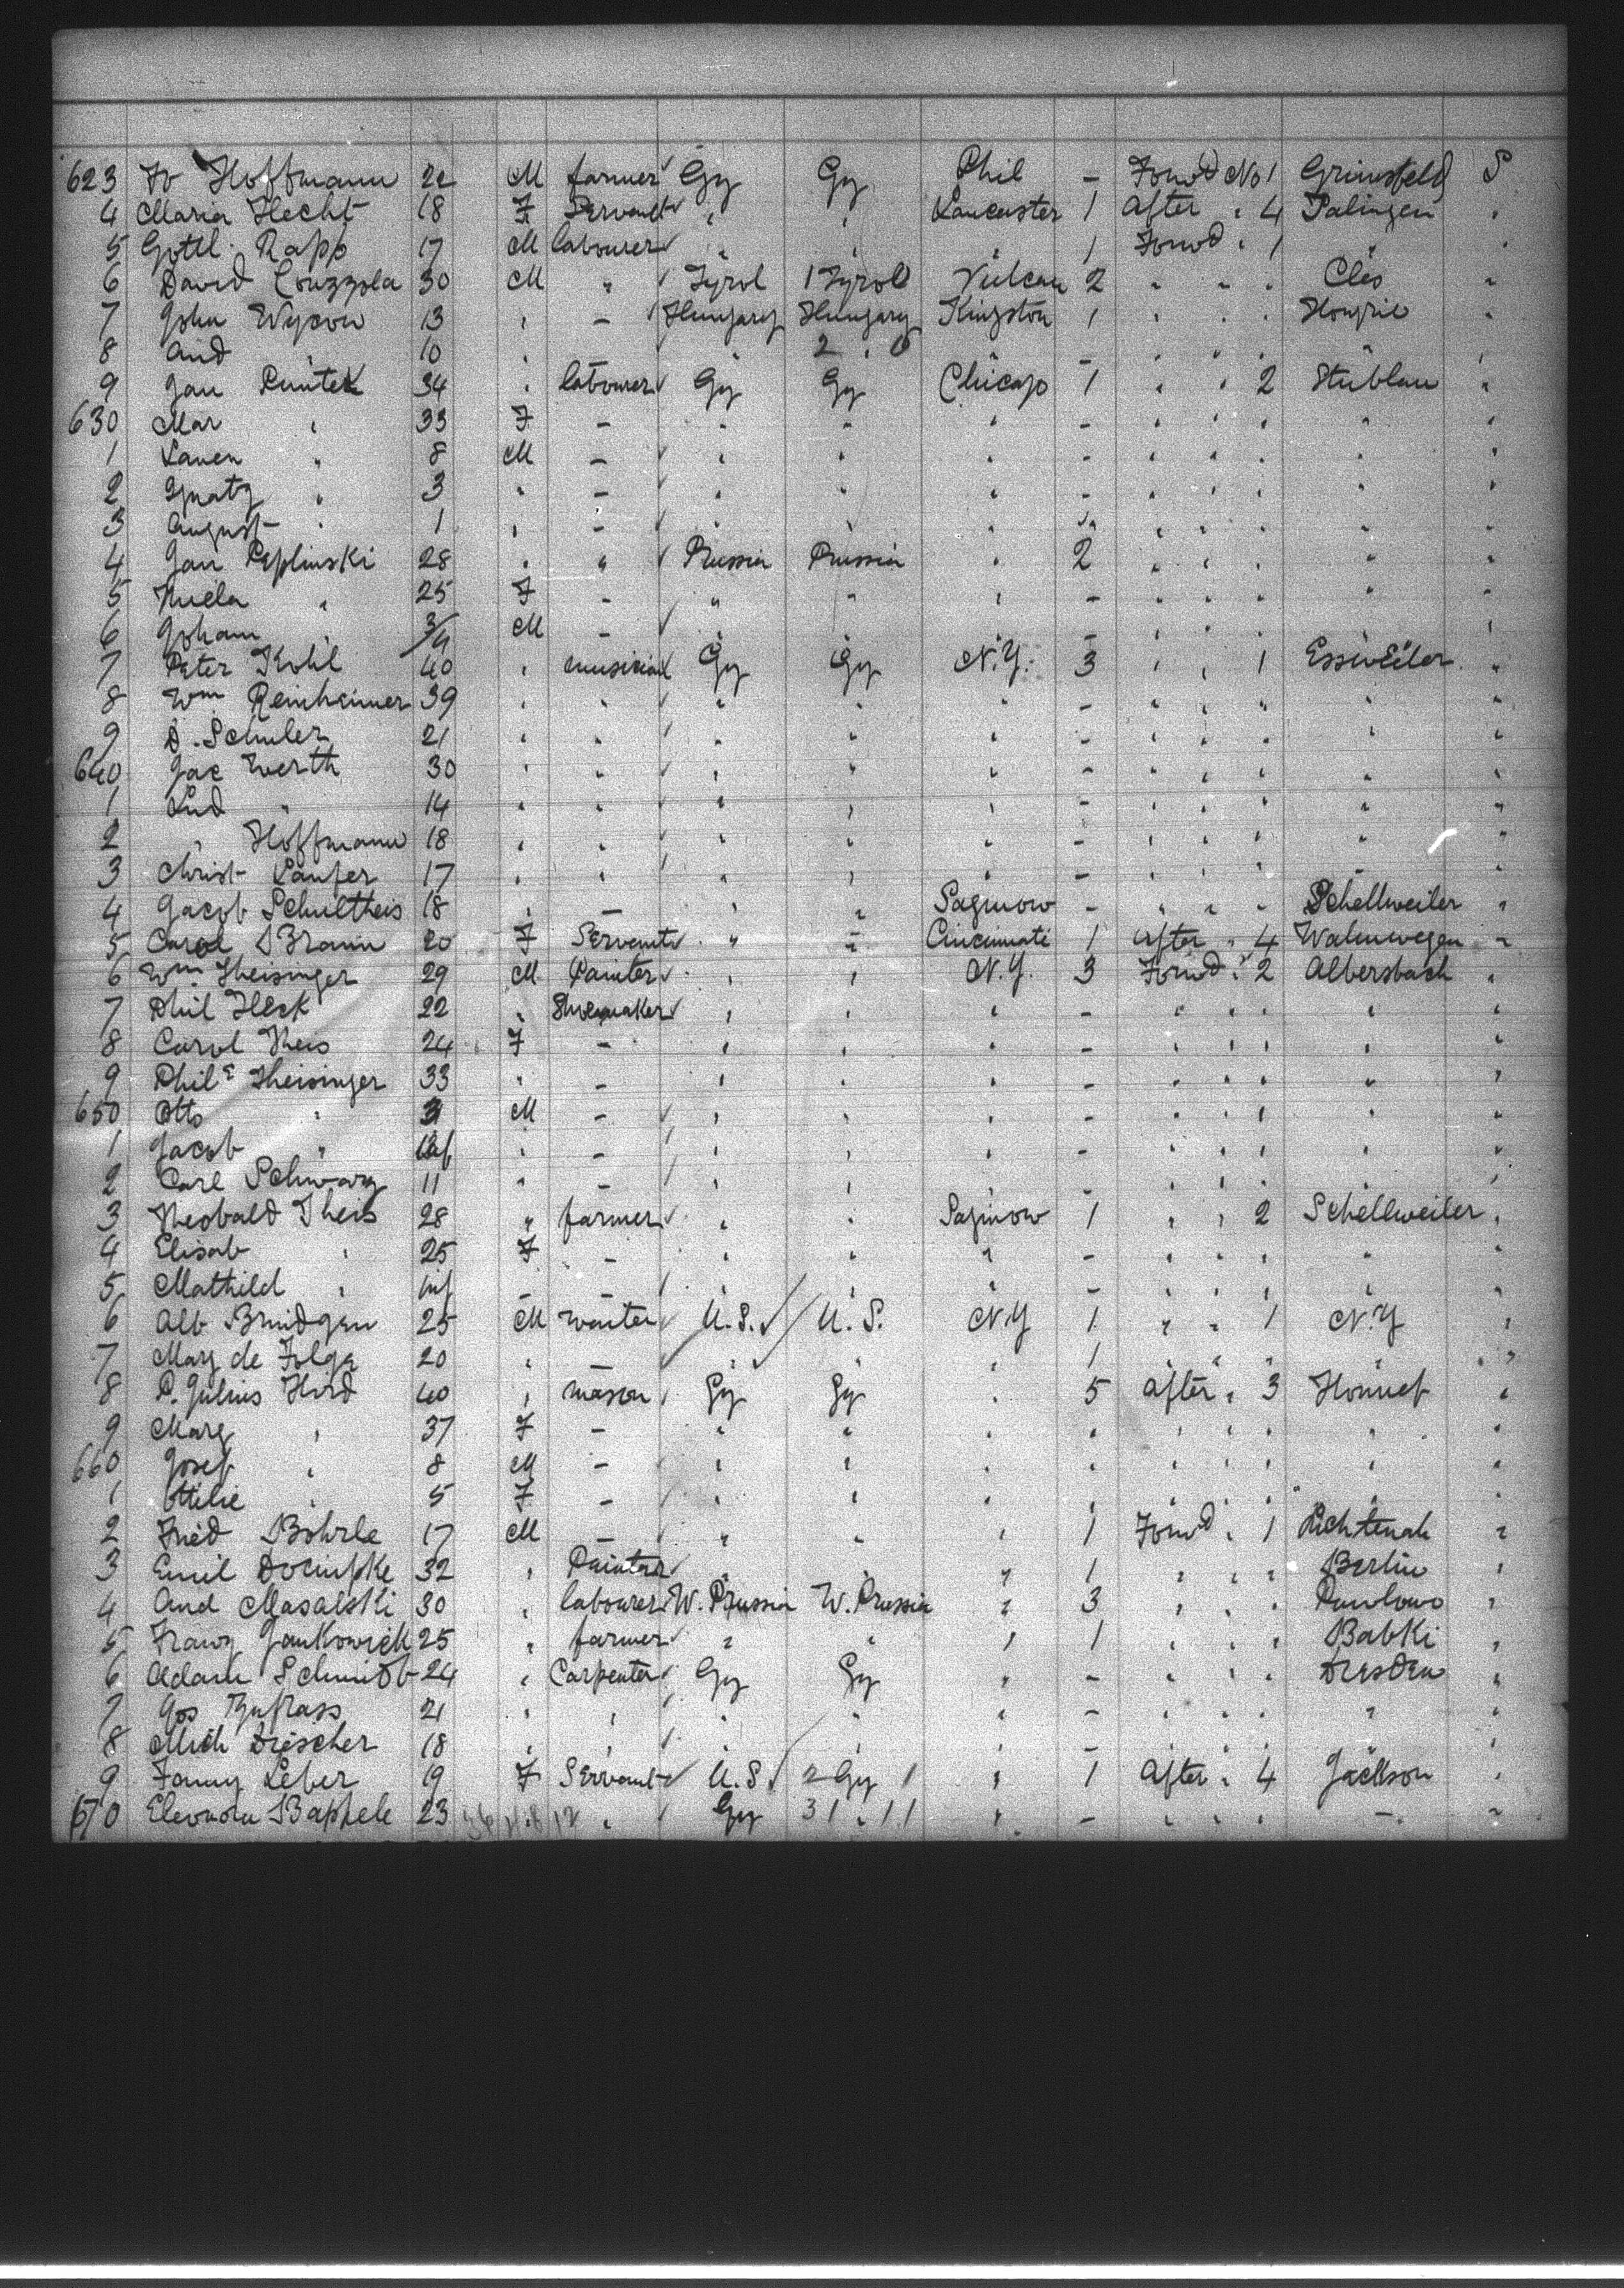 623 Fr Hoffmann 22 M farmer Gy Gy Phil - Forwd No 1 Grünsfeld S
4 Maria Hecht 18 F Servant " " Lancaster 1 After " 4 Palingen "
5 Gottl. Rapp 17 M labourer " " " 1 Forwd " 1 " "
6 David 30 M " Tyrol Tyrol Vulcan 2 " " " Cles "
7 John Wycow 13 " - Hungary Hungary Kingston 1 " " "
8 And " 10 " " " -
9 Jan 34 " labourer Gy Gy Chicago 1 " " 2 Stüblau "
630 Mar " 33 F - " " " - " " " " "
1 Lauen " 8 M - " " " - " " " " "
2 Ignatz " 3 " - " " " - " " " " "
3 August " 1 " - " " " " " " " " "
4 Jan Peplinski 28 " " Prussia Prussia " 2 " " " " "
5 " 25 F - " " " - " " " " "
6 Johann " 3/4 M - " " " - " " " " "
7 Peter Kohl 40 " musician Gy Gy N.Y. 3 " " 1 Essweiler "
8 Wm Reinheimer 39 " " " " " - " " " " "
9 D. Schuler 21 " " " " " - " " " " "
640 Jac Werth 30 " " " " " - " " " " "
1 Lud " 14 " " " " " - " " " " "
2 " Hoffmann 18 " " " " " - " " " " "
3 Christ Laufer 17 " " " " " - " " " " "
4 Jacob Schultheis 18 " - " " Saginow - " " " Schellweiler "
5 Carol Braun 20 F Servant " " Cincinnati 1 After " 4 Walenwegen "
6 Wm Theisinger 29 M Painter " " N.Y. 3 Forwd " 2 Albersbach "
7 Phil Heck 22 " Shoemaker " " " - " " " " "
8 Carol Theis 24 F - " " " - " " " " "
9 Phile Theisinger 33 " - " " " - " " " " "
650 Otto " 3 M - " " " - " " " " "
1 Jacob " inf " - " " " - " " " " "
2 Carl Schwarz 11 " - " " " - " " " " "
3 Theobald Theis 28 " farmer " " Saginow 1 " " 2 Schellweiler "
4 Elisab " 25 F - " " " - " " " " "
5 Mathild " inf " - " " " - " " " " "
6 Alb Brundgen 25 M waiter U.S. U.S. N.Y 1 " " 1 N.Y "
7 Mary de Folga 20 " - " " " 1 " " " " "
8 P. Julius Hird 40 " mason Gy Gy " 5 After " 3 Honnef "
9 Marg " 37 F - " " " " " " " " "
660 Josef " 8 M - " " " " " " " " "
1 Ottilie " 5 F - " " " " " " " " "
2 Fried Bohrle 17 M - " " " 1 Forwd " 1 Lichtenah "
3 Emil 32 " Painter " " " 1 " " " Berlin "
4 And Masalski 30 " labourer W. Prussia W. Prussia " 3 " " " Pawlowo "
5 Franz Jankowick 25 " farmer " " " 1 " " " Babki "
6 Adam Schmidt 24 " Carpenter Gy Gy " - " " " Dresden "
7 Jos Zufrass 21 " " " " " - " " " " "
8 Mich Drescher 18 " " " " " - " " " " "
9 Fanny Leber 19 F Servant U.S 2 Gy 1 " 1 After " 4 Jackson "
670 Eleonora Baphele 23 " " Gy 31 " 11 " - " " " - "